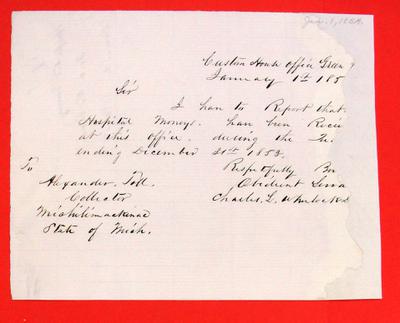 Jan. 1, 1854.
Custom House office Green
January 1st 185
Sir
I han to Report that
Hospital Moneys. han been Recie
at this office. during the
ending December 31st 1853.
Respectfully
To
Obedient Serva
Alexander. Toll.
Charles. L.
Collector
Michilimackinac
State of Mich.